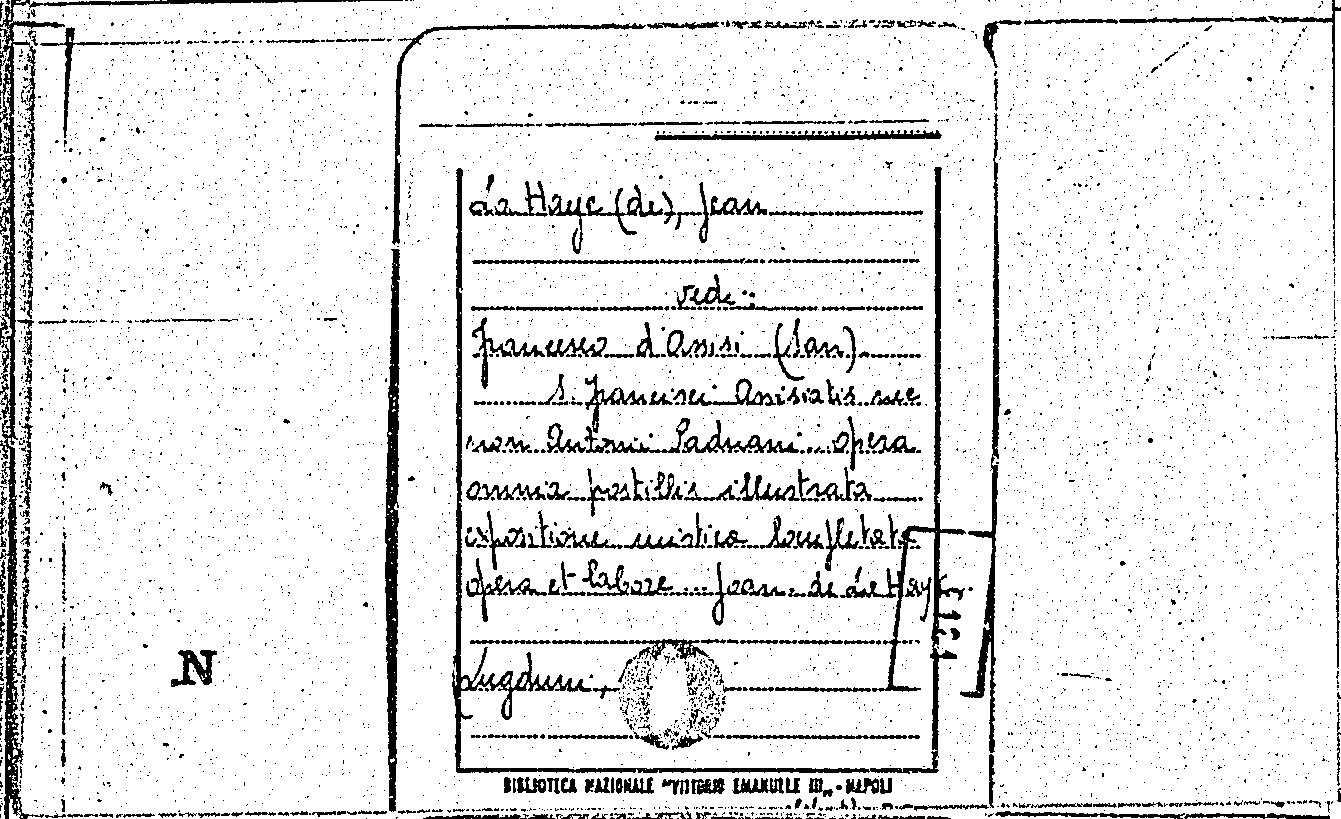 La Haye (de), Jean
vedi:
Francesco d'Assisi (San)
S. Francisci Assisiatis nec
non Antonii Paduani... opera
omnia postillis illustrata
expositione mistica completata
opera et labore... Joan. de La Haye
Lugduni,
N
BIBLIOTECA NAZIONALE "VITTORIO EMANUELE III„ - NAPOLI